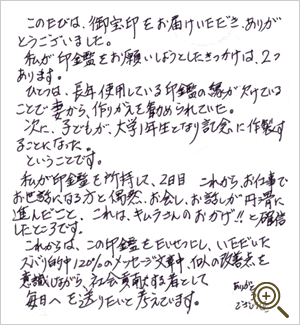 このたびは、御宝印をお届けいただき、ありが
とうございました。
私が印鑑をお願いしようとしたきっかけは、2つ
あります。
ひとつは、長年使用している印鑑の縁が欠けている
ことで妻から、作りかえを勧められていた。
次に、子どもが、大学1年生となり記念に作製す
ることになった。
ということです。
私が印鑑を所持して、2日目 これから、お仕事で
お世話になる方と偶然、お会いし、お話しが円滑に
進んだこと、これは、キムラさんのおかげ!!と確信
したところです。
これからは、この印鑑をたいせつにし、いただいた
ズバリ的中120%のメッセージ文章中、私の改善点を
意識しながら、社会貢献する者として
毎日へを送りたいと考えています。
ありがとう
ございました